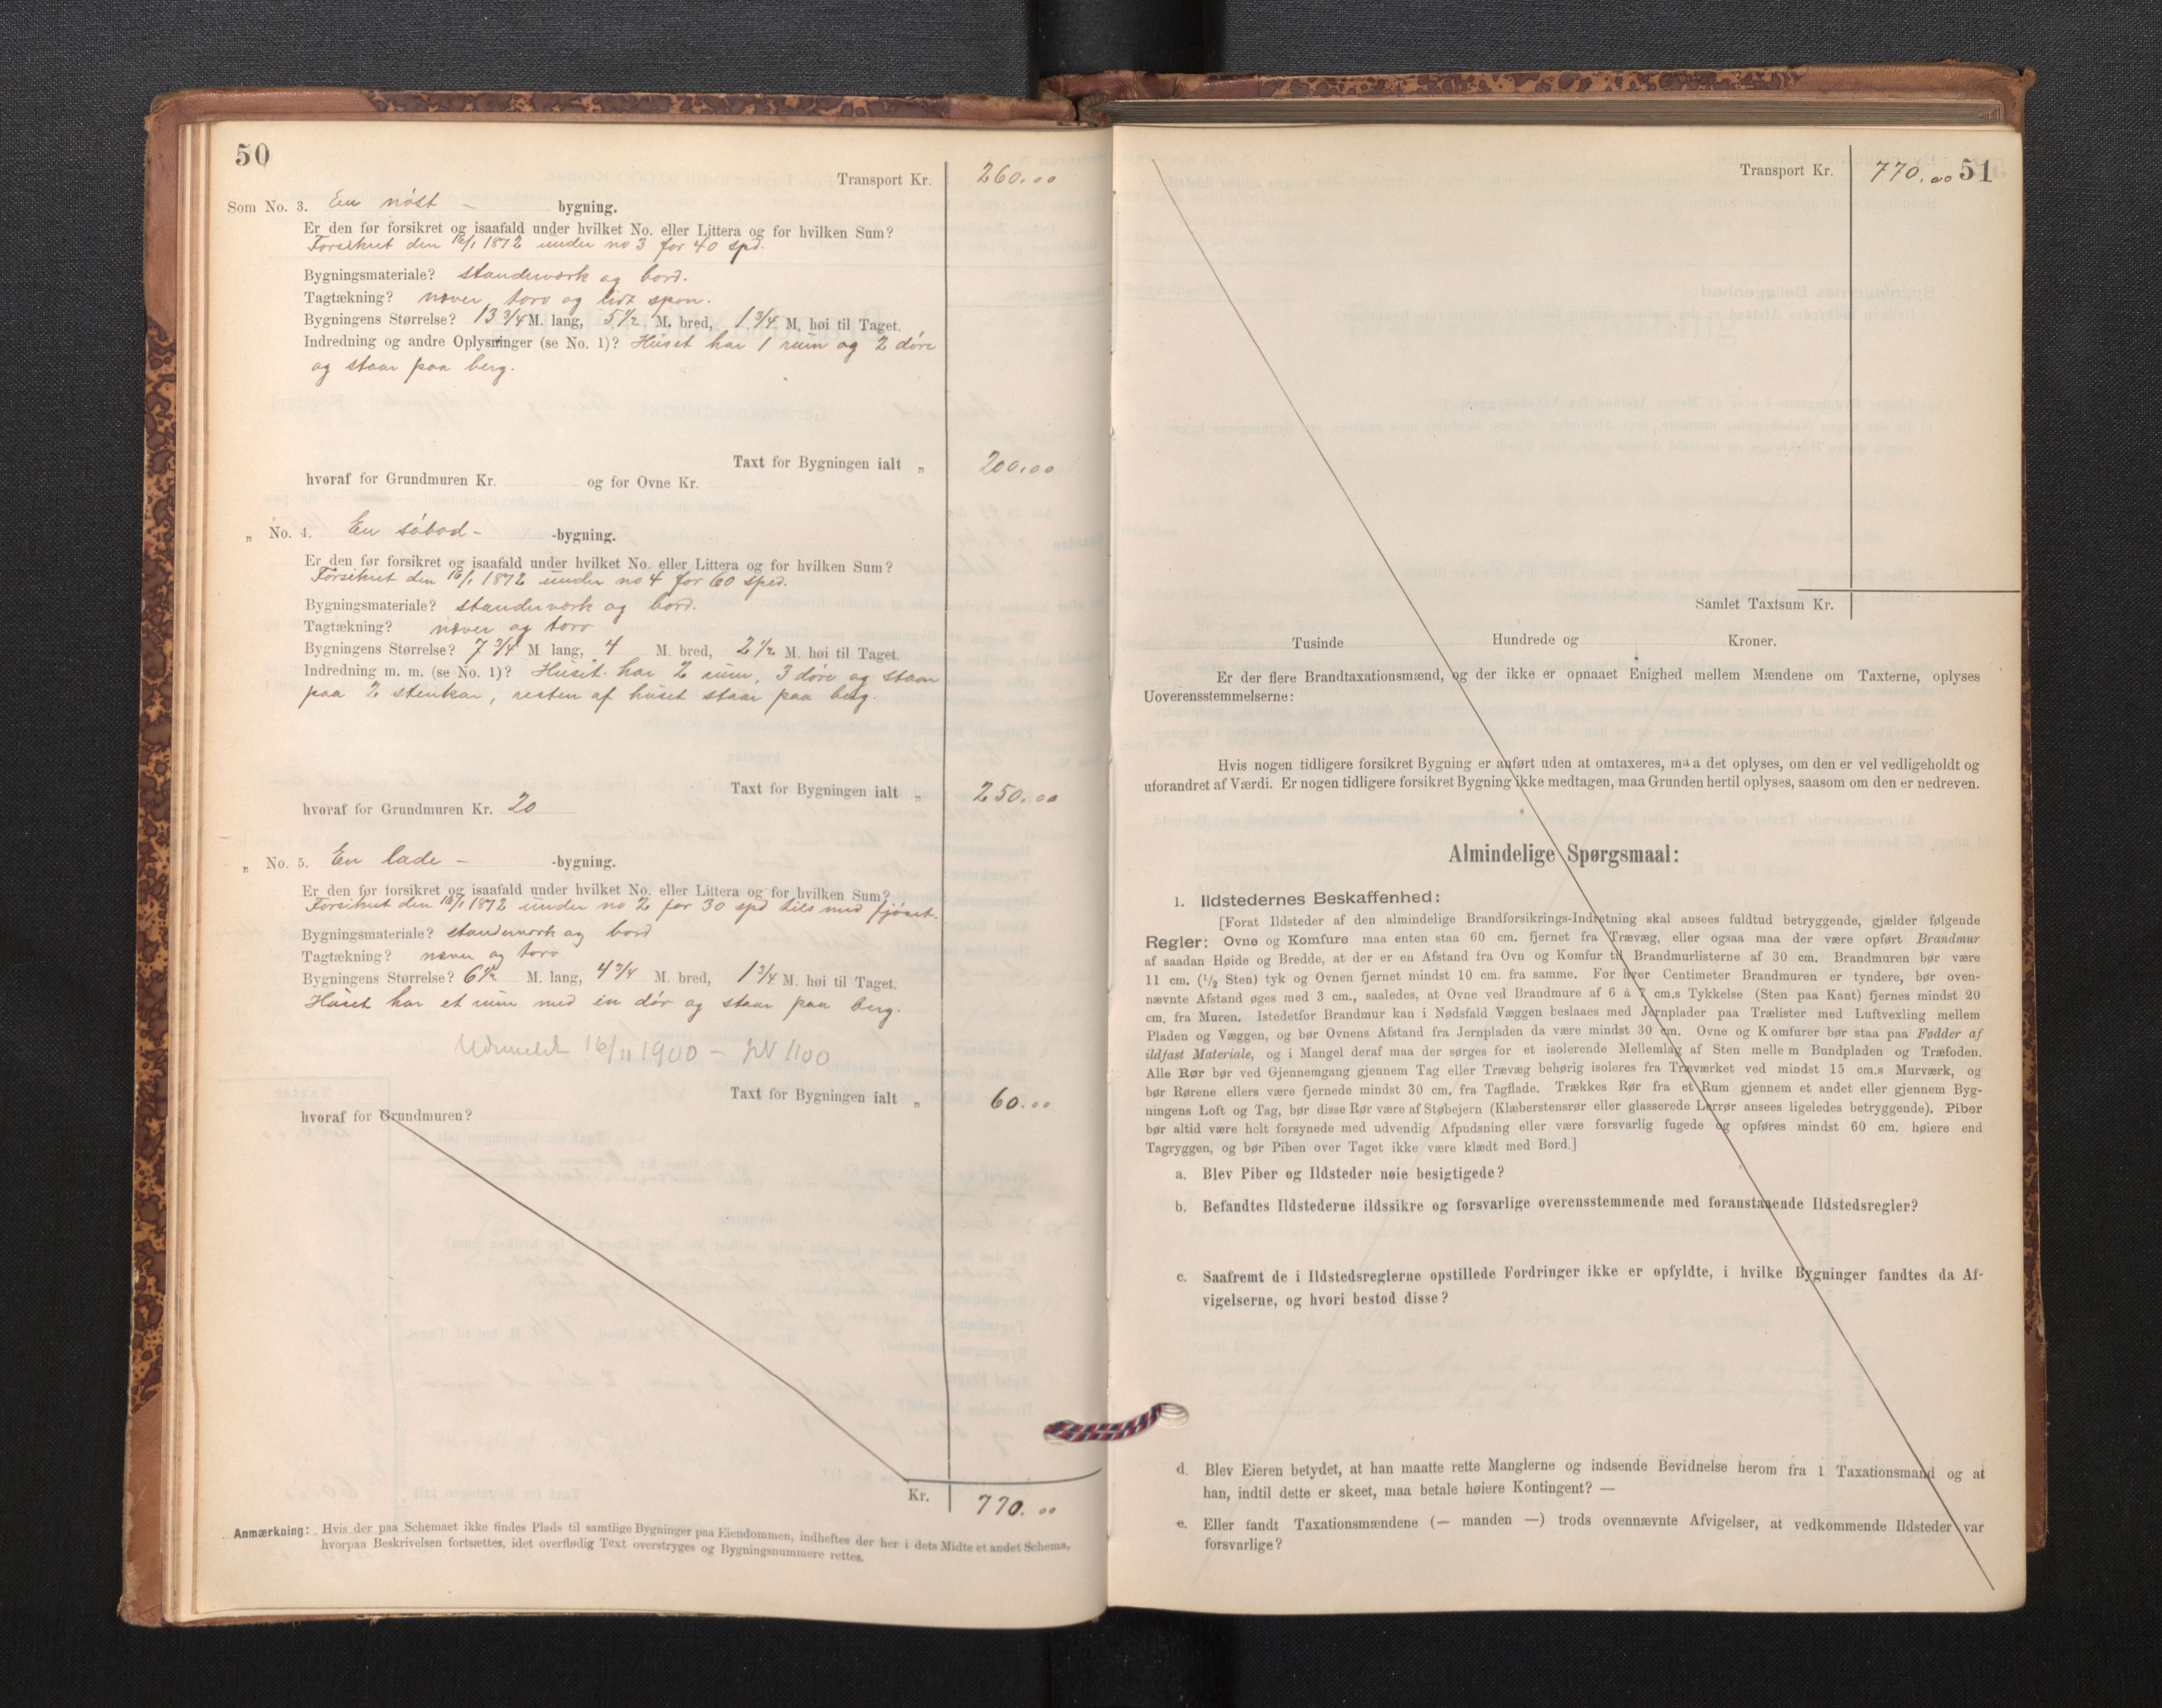 50
Transport Kr. 260.00
Som No. 3. En nöst - bygning.
Er den før forsikret og isaafald under hvilket No. eller Littera og for hvilken Sum?
Forsikret den 16/1 1872 under no 3 for 40 spd.
Bygningsmateriale? standerværk og bord.
Tagtækning? never, torv og lidt spon.
Bygningens Størrelse? 13 3/4 M. lang, 5 1/2 M. bred, 1 3/4 M. høi til Taget.
Indredning og andre Oplysninger (se No. 1)? Huset har 1 rum og 2 döre
og staar paa berg.
Taxt for Bygningen ialt „ 200.00
hvoraf for Grundmuren Kr. og for Ovne Kr.
„ No. 4. En söbod - -bygning.
Er den før forsikret og isaafald under hvilket No. eller Littera og for hvilken Sum?
Forsikret den 16/1 1872 under no 4 for 60 sped.
Bygningsmateriale? standerværk og bord.
Tagtækning? never og torv
Bygningens Størrelse? 7 3/4 M. lang, 4 M. bred, 2 1/2 M. høi til Taget.
Indredning m. m. (se No. 1)? Huset har 2 rum, 3 döre og staar
paa 2 stenkar, resten af huset staar paa berg.
Taxt for Bygningen ialt „ 250.00
hvoraf for Grundmuren Kr. 20
„ No. 5. En lade - -bygning.
Er den før forsikret og isaafald under hvilket No. eller Littera og for hvilken Sum?
Forsikret den 16/1 1872 under no 2 for 30 spd tils med fjöset.
Bygningsmateriale? standerværk og bord
Tagtækning? never og torv
Bygningens Størrelse? 6 1/2 M. lang, 4 3/4 M. bred, 1 3/4 M. høi til Taget.
Huset har et rum med en dör og staar paa berg.
Udmeldt 16/11 1900 - 1100
Taxt for Bygningen ialt „ 60.00
hvoraf for Grundmuren?
Kr. 770.00
Anmærkning: Hvis der paa Schemaet ikke findes Plads til samtlige Bygninger paa Eiendommen, indheftes der her i dets Midte et andet Schema,
hvorpaa Beskrivelsen fortsættes, idet overflødig Text overstryges og Bygningsnummere rettes.
Transport Kr. 770.00 51
Samlet Taxtsum Kr.
Tusinde Hundrede og Kroner.
Er der flere Brandtaxationsmænd, og der ikke er opnaaet Enighed mellem Mændene om Taxterne, oplyses
Uoverensstemmelserne:
Hvis nogen tidligere forsikret Bygning er anført uden at omtaxeres, maa det oplyses, om den er vel vedligeholdt og
uforandret af Værdi. Er nogen tidligere forsikret Bygning ikke medtagen, maa Grunden hertil oplyses, saasom om den er nedreven.
Almindelige Spørgsmaal:
1. Ildstedernes Beskaffenhed:
[Forat Ildsteder af den almindelige Brandforsikrings-Indretning skal ansees fuldtud betryggende, gjælder følgende
Regler: Ovne og Komfure maa enten staa 60 cm. fjernet fra Trævæg, eller ogsaa maa der være opført Brandmur
af saadan Høide og Bredde, at der er en Afstand fra Ovn og Komfur til Brandmurlisterne af 30 cm. Brandmuren bør være
11 cm. (1/2 Sten) tyk og Ovnen fjernet mindst 10 cm. fra samme. For hver Centimeter Brandmuren er tyndere, bør oven-
nævnte Afstand øges med 3 cm., saaledes, at Ovne ved Brandmure af 6 à 7 cm.s Tykkelse (Sten paa Kant) fjernes mindst 20
cm. fra Muren. Istedetfor Brandmur kan i Nødsfald Væggen beslaaes med Jernplader paa Trælister med Luftvexling mellem
Pladen og Væggen, og bør Ovnens Afstand fra Jernpladen da være mindst 30 cm. Ovne og Komfurer bør staa paa Fødder af
ildfast Materiale, og i Mangel deraf maa der sørges for et isolerende Mellemlag af Sten mellem Bundpladen og Træfoden.
Alle Rør bør ved Gjennemgang gjennem Tag eller Trævæg behørig isoleres fra Træværket ved mindst 15 cm.s Murværk, og
bør Rørene ellers være fjernede mindst 30 cm. fra Tagflade. Trækkes Rør fra et Rum gjennem et andet eller gjennem Byg-
ningens Loft og Tag, bør disse Rør være af Støbejern (Klæberstensrør eller glasserede Lerrør ansees ligeledes betryggende). Piber
bør altid være helt forsynede med udvendig Afpudsning eller være forsvarlig fugede og opføres mindst 60 cm. høiere end
Tagryggen, og bør Piben over Taget ikke være klædt med Bord.]
a. Blev Piber og Ildsteder nøie besigtigede?
b. Befandtes Ildstederne ildssikre og forsvarlige overensstemmende med foranstaaende Ildstedsregler?
c. Saafremt de i Ildstedsreglerne opstillede Fordringer ikke er opfyldte, i hvilke Bygninger fandtes da Af-
vigelserne, og hvori bestod disse?
d. Blev Eieren betydet, at han maatte rette Manglerne og indsende Bevidnelse herom fra 1 Taxationsmand og at
han, indtil dette er skeet, maa betale høiere Kontingent? —
e. Eller fandt Taxationsmændene (— manden —) trods ovennævnte Afvigelser, at vedkommende Ildsteder var
forsvarlige?